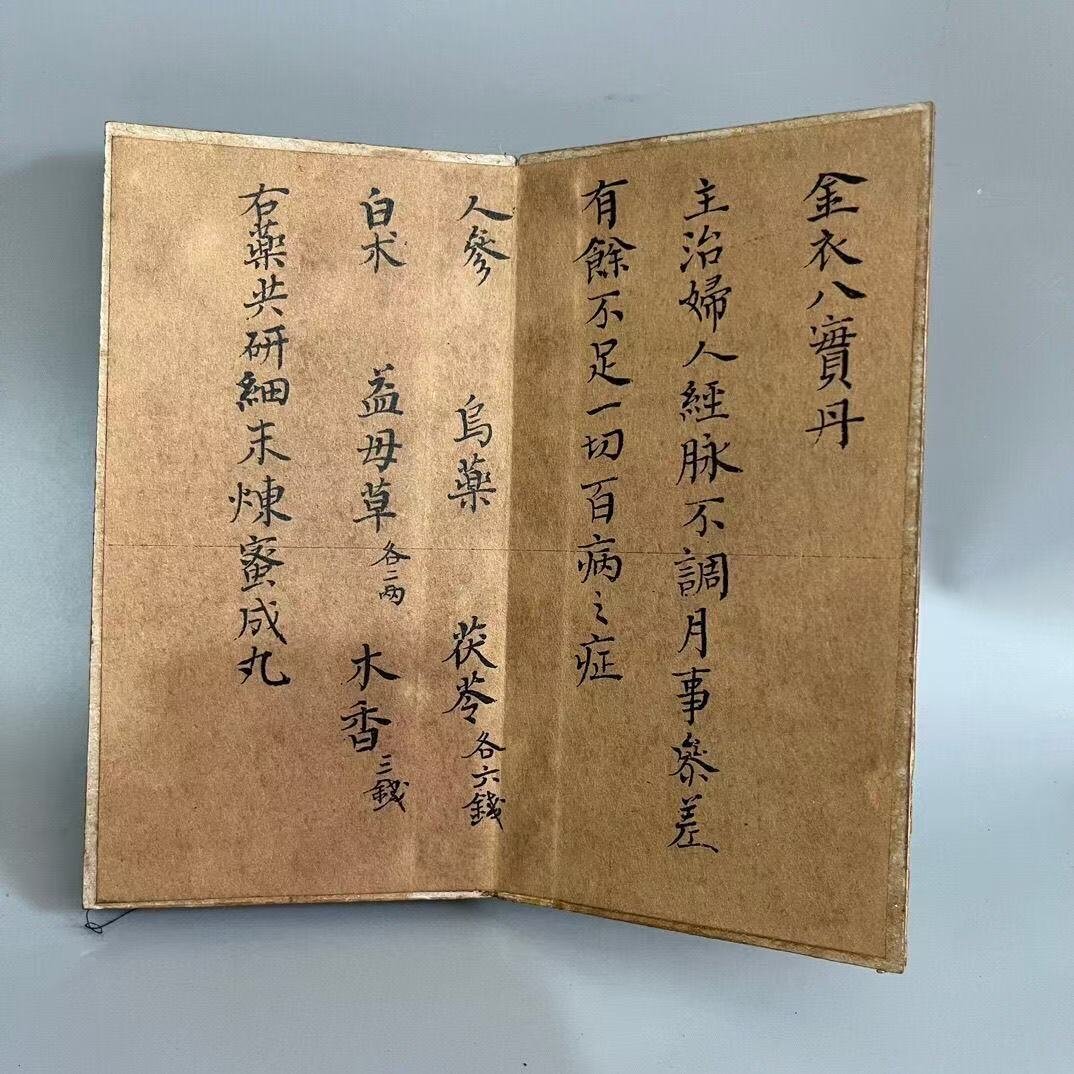 金衣八寳丹
主治婦人經脉不調月事叅差
有餘不足一切百病之症
人參 烏藥 茯苓各六錢
白朮 益母草各二兩 木香三錢
右藥共研細末煉蜜成丸